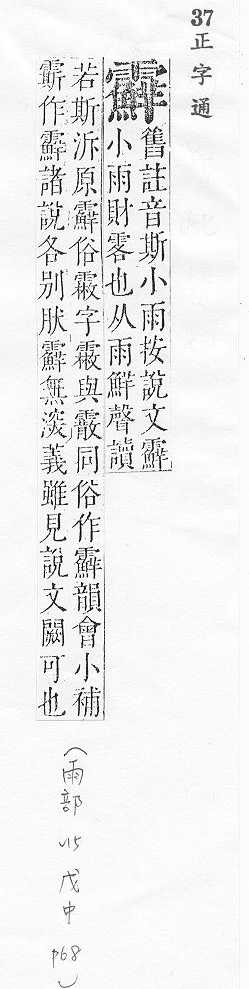 37正字通
䨘
舊註音斯小雨按說文䨘
小雨財零也从雨鮮聲讀
若斯泝原䨘俗霰字霰與同俗作䨘韻會小補
作䨘諸說各別肰䨘無㴱義雖見說文闕可也
(雨部 15 戌中 p68)